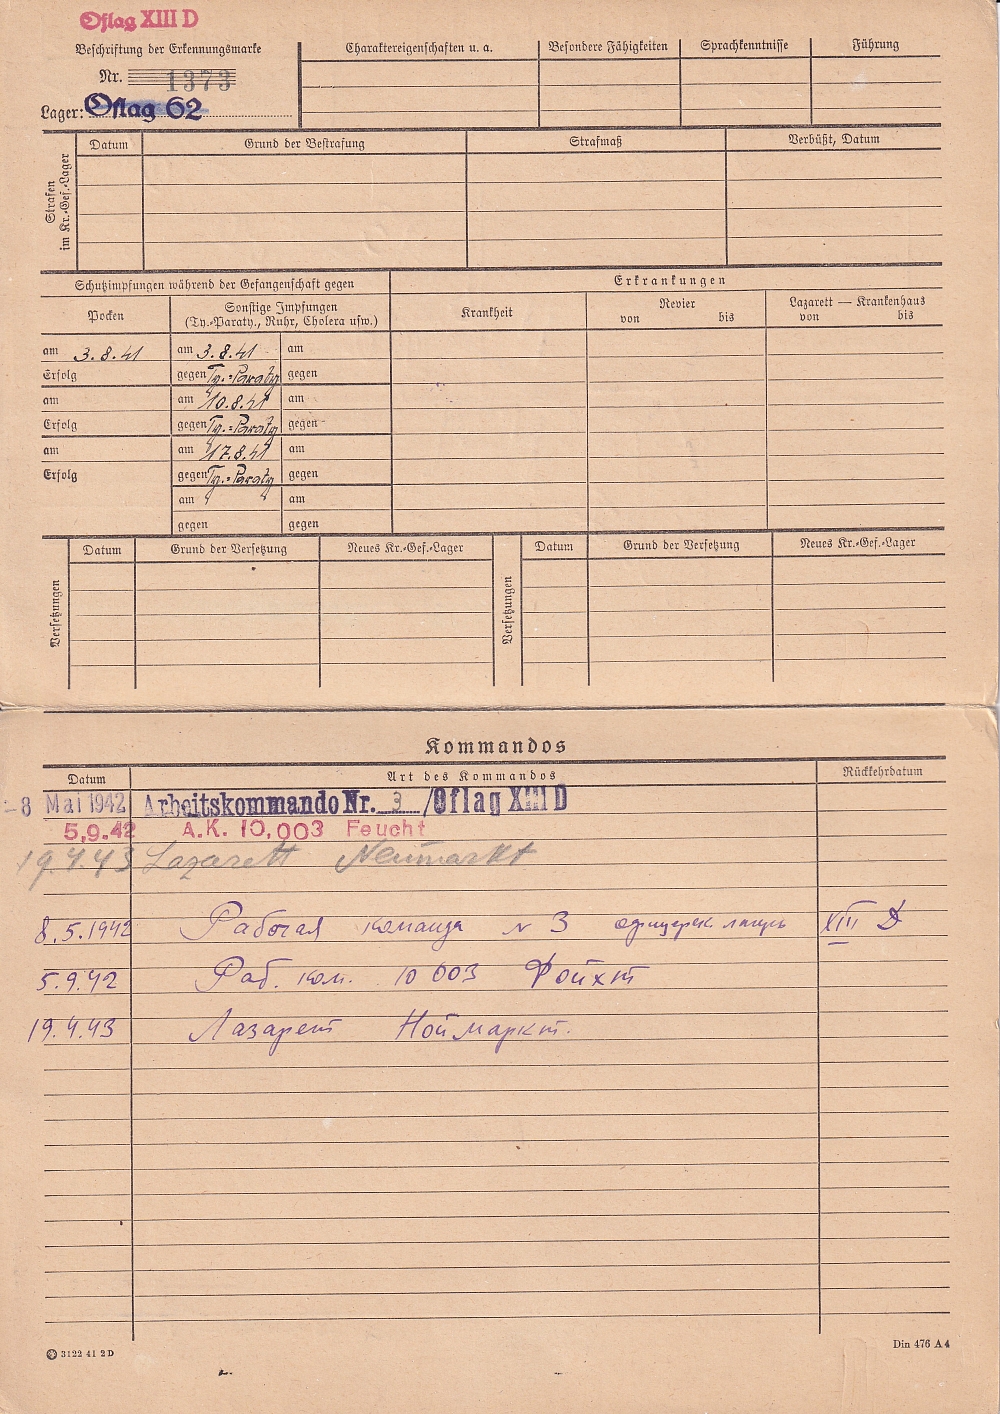 Oflag XIII D
Beschriftung der Erkennungsmarke
Nr. 1373
Lager: Oflag 62
Charaktereigenschaften u. a.
Besondere Fähigkeiten
Sprachkenntnisse
Führung
Strafen im Kr.-Gef.-Lager
Datum
Grund der Bestrafung
Strafmaß
Verbüßt, Datum
Schutzimpfungen während der Gefangenschaft gegen
Erkrankungen
Pocken
Sonstige Impfungen
(Ty.-Paraty., Ruhr, Cholera usw.)
Krankheit
Revier
von bis
Lazarett — Krankenhaus
von bis
am 3.8.41 am 3.8.41 am
Erfolg gegen Ty.-Paraty gegen
am am 10.8.41 am
Erfolg gegen Ty.-Paraty gegen
am am 17.8.41 am
Erfolg gegen Ty.-Paraty gegen
am am
gegen gegen
Versetzungen
Datum
Grund der Versetzung
Neues Kr.-Gef.-Lager
Versetzungen
Datum
Grund der Versetzung
Neues Kr.-Gef.-Lager
Kommandos
Datum
Art des Kommandos
Rückkehrdatum
-8 Mai 1942 Arbeitskommando Nr. 3 /Oflag XIII D
5.9.42 A.K. 10.003 Feucht
19.4.43 Lazarett Neumarkt
8.5.1942 Рабочая команда N 3 офицерск лагерь XIII D
5.9.42 Раб. ком. 10 003 Фойхт
19.4.43 Лазарет Ноймаркт.
3122 41 2 D
Din 476 A 4